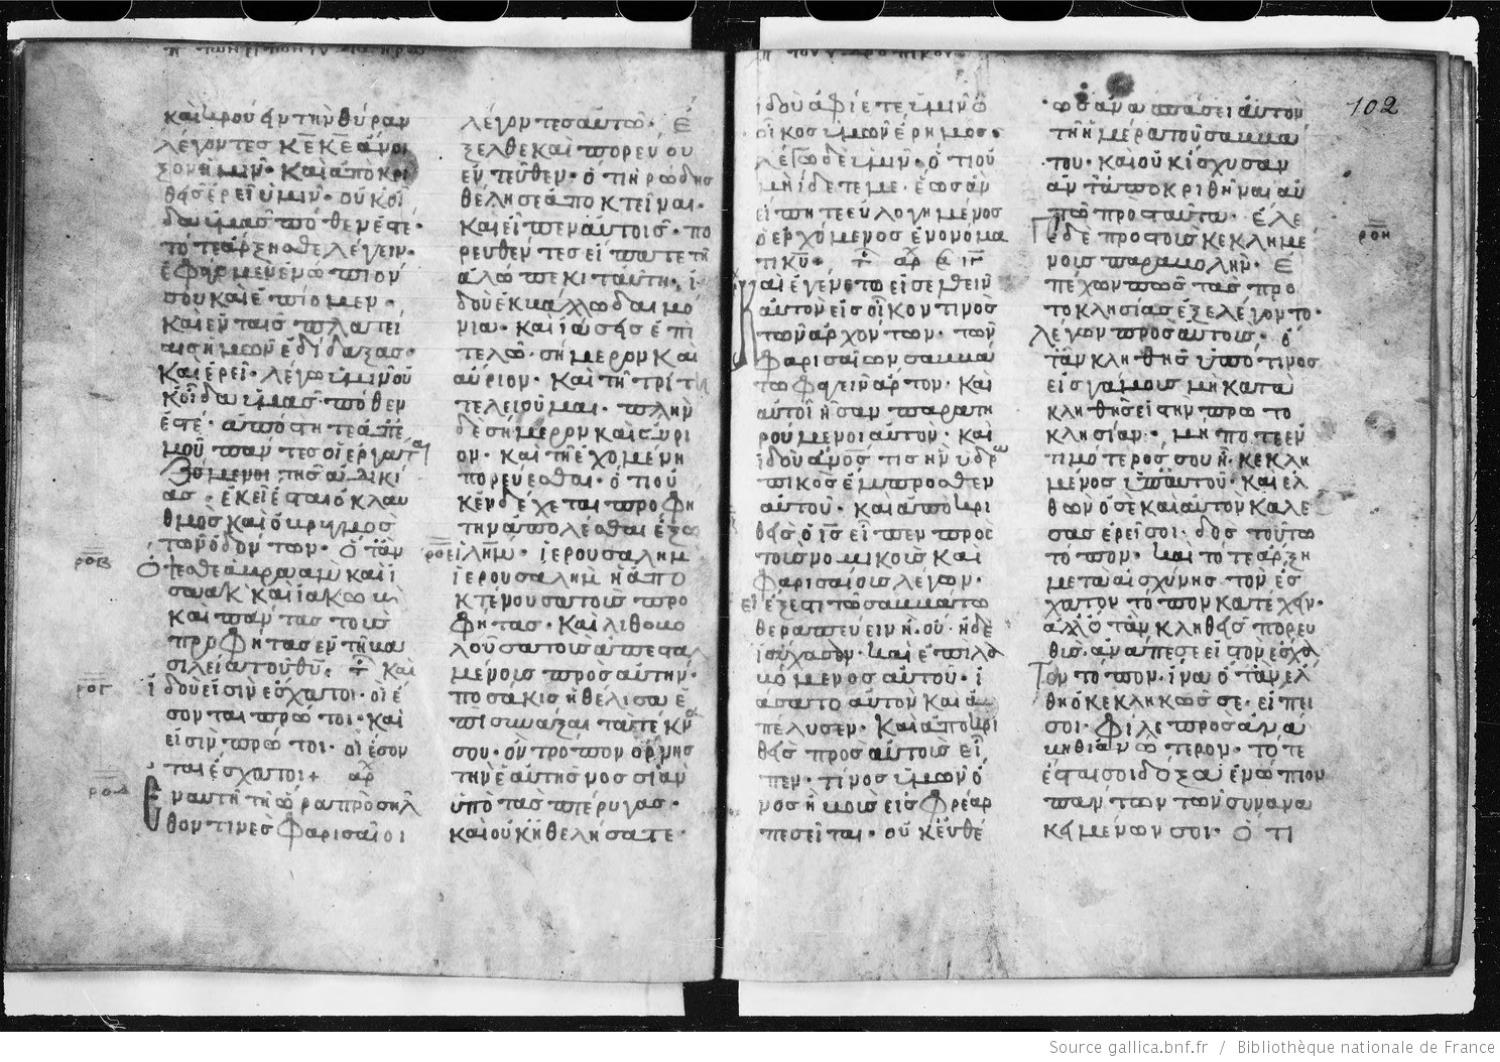 καὶ κρούειν τὴν θύραν
λέγοντες κ̅ε̅ κ̅ε̅ ἄνοι
ξον ἡμῖν· καὶ ἀποκρι
θεὶς ἐρεῖ ὑμῖν· οὐκ οἶ
δα ὑμᾶς πόθεν ἐστέ·
τότε ἄρξησθε λέγειν·
ἐφάγομεν ἐνώπιον
σου καὶ ἐπίομεν·
καὶ ἐν ταῖς πλατεί
αις ἡμῶν ἐδίδαξας·
καὶ ἐρεῖ· λέγω ὑμῖν οὐ
κ οἶδα ὑμᾶς πόθεν
ἐστέ· ἀπόστητε ἀπ ἐ
μοῦ πάντες οἱ ἐργά
ζόμενοι τῆς ἀδικί
ας· ἐκεῖ ἔσται ὁ κλαυ
θμὸς καὶ ὁ βρυγμὸς
τῶν ὀδόντων· ὅταν
ὄψεσθε ἀβραὰμ καὶ ἰ
σαὰκ καὶ ἰακὼβ
καὶ πάντας τοὺς
προφήτας ἐν τῇ βα
σιλεία τοῦ θ̅υ̅· καὶ
ἰδοὺ εἰσὶν ἔσχατοι· οἱ ἔ
σονται πρῶτοι· καὶ
εἰσὶν πρῶτοι· οἱ ἔσον
ται ἔσχατοι+
Ἐν αὐτῇ τῇ ὥρα προσῆλ
θον τινὲς φαρισαῖοι
ροβ
ρογ
ροδ
λέγοντες αὐτῶ· ἔ
ξελθε καὶ πορεύου
ἐντεῦθεν· ὅτι ἡρώδης
θέλη σε ἀποκτεῖναι·
καὶ εἶπεν αὐτοῖς· πο
ρευθέντες εἴπατε τῇ
ἀλώπεκι ταύτη· ἰ
δοὺ ἐκβάλλω δαιμό
νια· καὶ ἰάσεις ἐπι
τελῶ· σήμερον καὶ
αὔριον· καὶ τῇ τρίτη
τελειοῦμαι· πλὴν
δεῖ σήμερον καὶ αὔρι
ον· καὶ τῇ ἐχομένη
πορεύεσθαι· ὅτι οὐ
κ ἐνδέχεται προφή
την ἀπολέσθαι ἔξω
ροε
ἰ̅λ̅η̅μ̅· ἱερουσαλὴμ
ἱερουσαλὴμ ἡ ἀπο
κτένουσα τοὺς προ
φήτας· καὶ λιθοβο
λοῦσα τοὺς ἀπεσταλ
μένους πρὸς αὐτήν·
ποσάκις ἠθέλισα ἐ
πισυνάξαι τὰ τέκνα
σου· ὃν τρόπον ὄρνης
τὴν ἑαυτῆς νοσσίαν
ὑπὸ τὰς πτέρυγας·
καὶ οὐκ ἠθελήσατε·
ἰδοὺ ἀφίεται ὑμῖν ὁ
οἶκος ὑμῶν ἔρημος·
λέγω δὲ ὑμῖν· ὅτι οὐ
μὴ ἴδετέ με· ἕως ἂν
εἴπητε εὐλογημένος
ὁ ἐρχόμενος ἐν ὀνόμα
τι κ̅υ̅+
Καὶ ἐγένετο εἰσελθεῖν
αὐτὸν εἰς οἶκον τινὸς
τῶν ἀρχόντων· τῶν
φαρισαίων σαββά
τω φαγεῖν ἄρτον· καὶ
αὐτοὶ ἦσαν παρατη
ρούμενοι αὐτόν· καὶ
ἰδοὺ ἄνος τὶς ἦν ὑδρω
πικὸς ἔμπροσθεν
αὐτοῦ· καὶ ἀποκρι
θεὶς ὁ ι̅ς̅ εἶπεν πρὸς
τοὺς νομικοὺς καὶ
φαρισαίους λέγων·
εἰ ἔξεστι τῶ σαββάτω
θεραπεύειν ἢ οὔ· ἡ δὲ
ἡσύχασαν· καὶ ἐπιλα
βόμενος αὐτοῦ· ἰ
άσατο αὐτὸν καὶ ἀ
πέλυσεν· καὶ ἀποκρι
θεὶς πρὸς αὐτοὺς εἶ
πεν· τίνος ὑμῶν ὄ
νος ἢ βοῦς εἰς φρέαρ
πεσεῖται· οὐκ εὐθέ
102
ως ἀνασπάσει αὐτὸν
τῇ ἡμέρα τοῦ σαββά
του· καὶ οὐκ ἴσχυσαν
ἀνταποκριθῆναι αὐ
τῶ πρὸς ταῦτα· ἔλε
γε δὲ πρὸς τοὺς κεκλημέ
νους παραβολήν· ἐ
πέχων πῶς τὰς πρω
τοκλησίας ἐξελέγοντο·
λέγων πρὸς αὐτούς· ὅ
ταν κληθῇς ὑπό τινος
εἰς γάμους μὴ κατα
κληθῇς εἰς τὴν πρωτο
κλησίαν· μή ποτε ἐν
τιμότερός σου ᾖ· κεκλη
μένος ὑπ αὐτοῦ· καὶ ἐλ
θὼν ὁ σὲ καὶ αὐτὸν καλέ
σας ἐρεῖ σοι· δὸς τούτω
τόπον· καὶ τότε ἄρξη
μετὰ αἰσχύνης· τὸν ἔσ
χατον τόπον κατέχειν·
ἀλλ ὅταν κληθεὶς πορευ
θεὶς· ἀνάπεσε εἰς τὸν ἔσχα
τον τόπον· ἵνα ὅταν ἔλ
θη ὁ κεκληκώς σε· εἴπει
σοι· φίλε προσανά
βηθι ἀνώτερον· τότε
ἔσται σοι δόξα ἐνώπιον
πάντων τῶν συνανα
κειμένων σοι· ὅτι
ροη
Source gallica.bnf.fr / Bibliothèque nationale de France